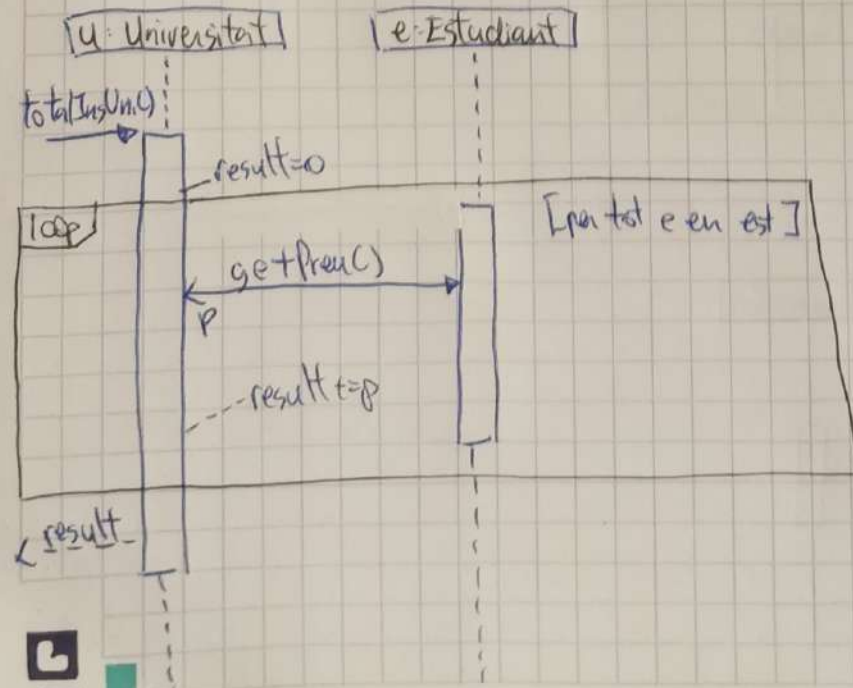 u: Universitat
e: Estudiant
totalInsUni()
result=0
loop
[per tot e en est]
getPreu()
p
result+=p
result